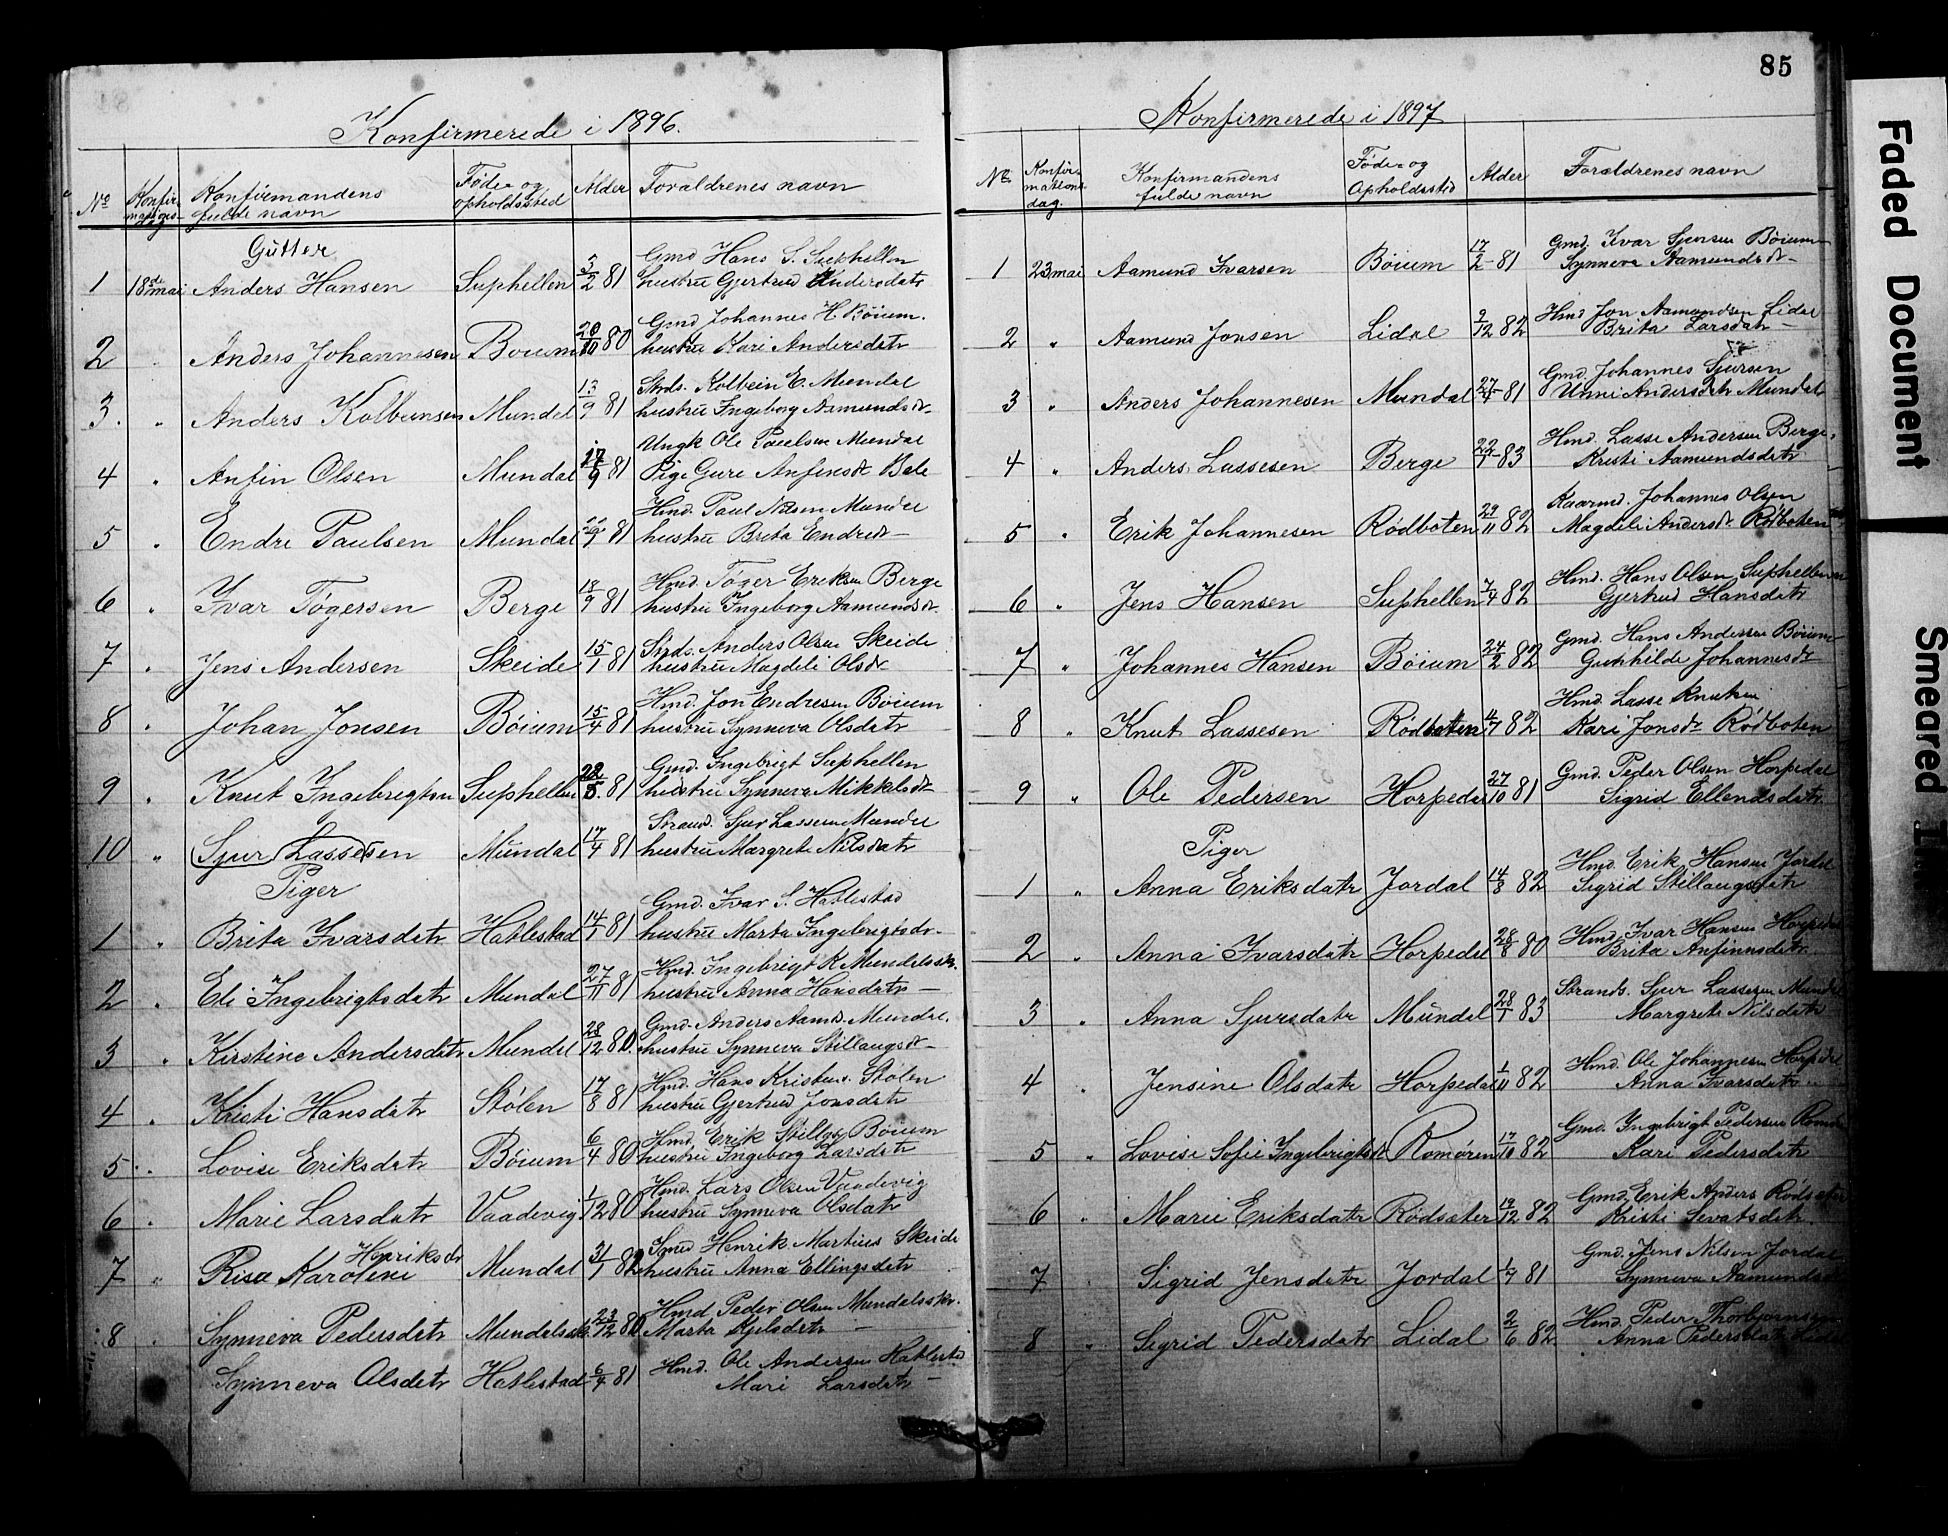 85
Konfirmerede i 1896.
No Konfirmations dag Konfirmandens fulde navn Føde- og opholdssted Alder Forældrenes navn
Gutter
Gmd Hans S. Suphellen
1 18de mai Anders Hansen Suphellen 3/2 81 hustru Gjertrud Andersdatr
Gmd Johannes H. Bøium.
2 " Anders Johannesen Bøium 20/10 80 hustru Kari Andersdatr
Kolbein E. Mundal
3. " Anders Kolbeinsen Mundal 13/9 81 hustru Ingeborg Aamundsdr
Ungk Ole Paulsen Mundal
4 " Anfin Olsen Mundal 17/9 81 Pige Guri Anfinsdr Bale
Hmd. Paul Nilsen Mundal
5 " Endre Paulsen Mundal /9 81 hustru Brita Endresdr
Hmd. Tøger Eriksen Berge
6 " Ivar Tøgersen Berge 18/9 81 hustru Ingeborg Aamundsdr
Anders Olsen Skeide
7 " Jens Andersen Skeide 15/1 81 hustru Magdeli Olsdr
Hmd. Jon Endresen Bøium
8 " Johan Jonsen Bøium 15/4 81 hustru Synneva Olsdatr
Gmd. Ingebrigt Suphellen
9 " Knut Ingebrigtsen Suphellen 22/5. 81 hustru Synneva Mikkelsdr
Strand. Sjur Lassesen Mundal
10 " Sjur Lassesen Mundal 17/4 81 hustru Margrete Nilsdatr
Piger
Gmd. Ivar S. Hatlestad
1 " Brita Ivarsdatr Hatlestad 14/1 81 hustru Marta Ingebrigtsdr.
Hmd. Ingebrigt K. Mundalssk.
2 " Eli Ingebrigtsdatr Mundal 27/11 81 hustru Anna Hansdatr
Gmd. Anders Aamds. Mundal.
3 " Kirstine Andersdatr Mundal 28/12 80. hustru Synneva Stillaugsdr
Hmd. Hans Kristens. Stølen
4 " Kristi Hansdatr Stølen 17/8 81 hustru Gjertrud Jonsdatr
Hmd. Erik Stillaugs Bøium
5 " Lovise Eriksdatr Bøium 6/4 80 hustru Ingeborg Larsdatr
Hmd. Lars Olsen Vaadevig
6 " Marie Larsdatr Vaadevig 1/12 80 hustru Synneva Olsdatr
Henriksdr Smed Henrik Martius Skeide
7 " Risa Karoline Mundal 31/1 82 hustru Anna Ellingsdatr
Hmd Peder Olsen Mundalssk.
8 " Synneva Pedersdatr Mundalssk 23/12 80 Marta Kjelsdatr
Hmd. Ole Andersen Hatlestad
Synneva Olsdatr Hatlestad 6/4 81 Mari Larsdatr
Konfirmerede i 1897
No. Konfirmations dag. Konfirmandens fulde navn Føde- og Opholdssted Alder Forældrenes navn
Gmd. Ivar Sjursen Bøium
1 23 mai Aamund Ivarsen Bøium 17/2 81 Synneva Aamundsdr
Hmd Jon Aamundsen Lidal
2 " Aamund Jonsen Lidal 9/12 82 Brita Larsdatr
Gmd Johannes Sjursen
3 " Anders Johannesen Mundal 27/ 81 Unni Andersdatr Mundal
Hmd. Lasse Andersen Berge.
4 " Anders Lassesen Berge 22/1 83 Kristi Aamundsdatr
Kaarmd. Johannes Olsen
5 " Erik Johannesen Rødboten 29/11 82 Magdeli Andersdr Rødboten
Hmd. Hans Olsen Suphellen
6 " Jens Hansen Suphellen 7/4 82 Gjertrud Hansdatr
Gmd. Hans Andersen Bøium
7 " Johannes Hansen Bøium 24/2 82 Gunhilde Johannesdr
Hmd. Lasse Knutsen
8 " Knut Lassesen Rødboten 4/7 82 Kari Jonsdr Rødboten
Gmd. Peder Olsen Horpedal
9 " Ole Pedersen Horpedal 27/10 81 Sigrid Ellendsdatr
Piger
Hmd. Erik Hansen Jordal
1 " Anna Eriksdatr Jordal 14/3 82 Sigrid Stillaugsdatr
Hmd. Ivar Hansen Horpedal
2 " Anna Ivarsdatr Horpedal 28/8 80 Brita Anfinnsdatr
Strands. Sjur Lassesen Mundal
3 " Anna Sjursdatr Mundal 28/1 83 Margrete Nilsdatr
Hmd. Ole Johannesen Horpedal
4 " Jensine Olsdatr Horpedal 1/11 82 Anna Ivarsdatr
Gmd. Ingebrigt Pedersen
5 " Lovise Sofie Ingebrigtsdr Romøren 17/10 82 Kari Pedersdatr
Gmd. Erik Anders Rødseter
6 " Marie Eriksdatr Rødseter 19/12 82 Kristi Sevatsdatr.
Gmd. Jens Nilsen Jordal
7. " Sigrid Jensdatr Jordal 1/7 81 Synneva Aamundsd
Hmd. Peder Thorbjørnsen
8 " Sigrid Pedersdatr Lidal 2/6 82 Anna Pedersdatr
Faded Document
Smeared